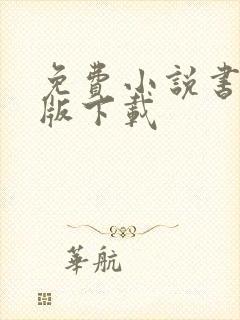 免費小説書
版下載
華航